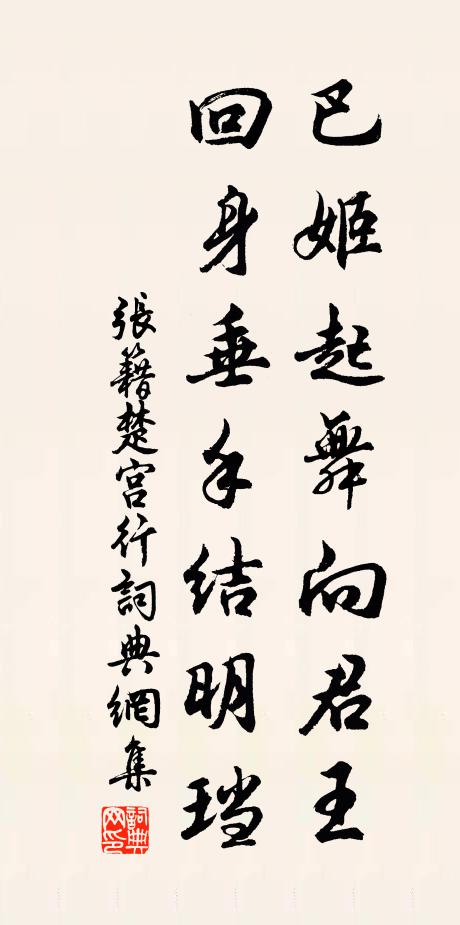 巴姬起舞向君王
回身垂手结明珰
張籍楚宫行詞典網集
詞典
网印